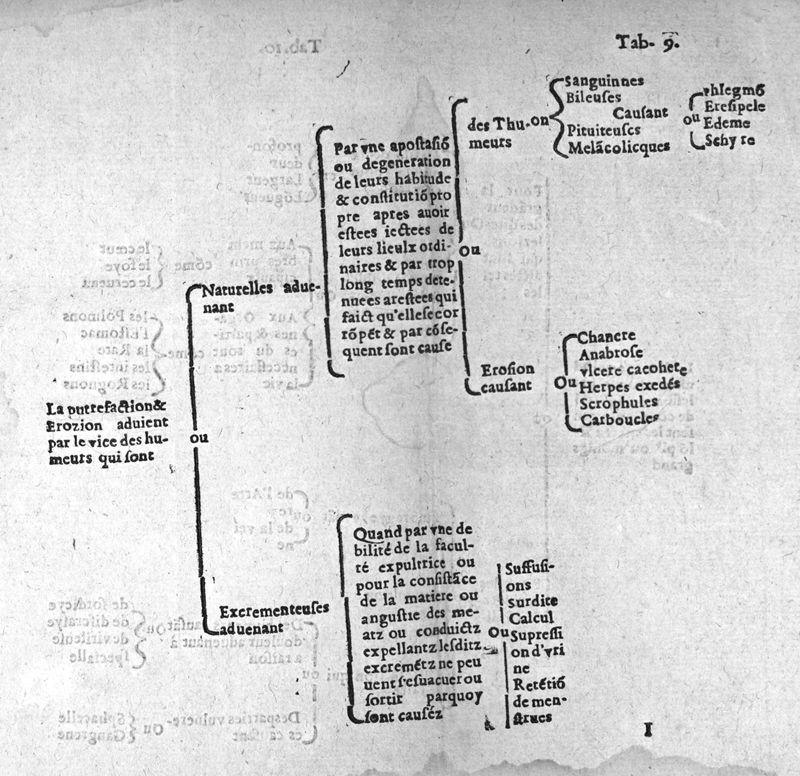 Tab. 9.
La putrefaction &
Erozion aduient
par le vice des hu-
meurs qui ſont
ou
Naturelles adue-
nant
Par vne apoſtaſiō
ou degeneration
de leurs habitude
& conſtitutiō pro
pre apres auoir
eſtees iectees de
leurs lieulx ordi-
naires & par trop
long temps dete-
nuees areſtees qui
faict qu'elles e cor
rōpēt & par cōſe-
quent ſont cauſe
des Thu-
meurs
on
Sanguinnes
Bileuſes
Cauſant
Pituiteuſes
Melācolicques
ou
phlegmō
Ereſipele
Edeme
Schyre
Ou
Eroſion
cauſant
Ou
Chancre
Anabroſe
vlcere cacohete
Herpes exedés
Scrophules
Carboucles
Excrementeuſes
aduenant
Quand par vne de
bilité de la facul-
té expultrice ou
pour la conſiſtāce
de la matiere ou
anguſtie des me-
atz ou conduictz
expellantz leſditz
excremētz ne peu
uent s'eſuacuer ou
ſortir parquoy
ſont cauſéz
Ou
Suffuſi-
ons
Surdite
Calcul
Supreſſi
on d'vri
ne
Retētiō
de men-
ſtrues
I